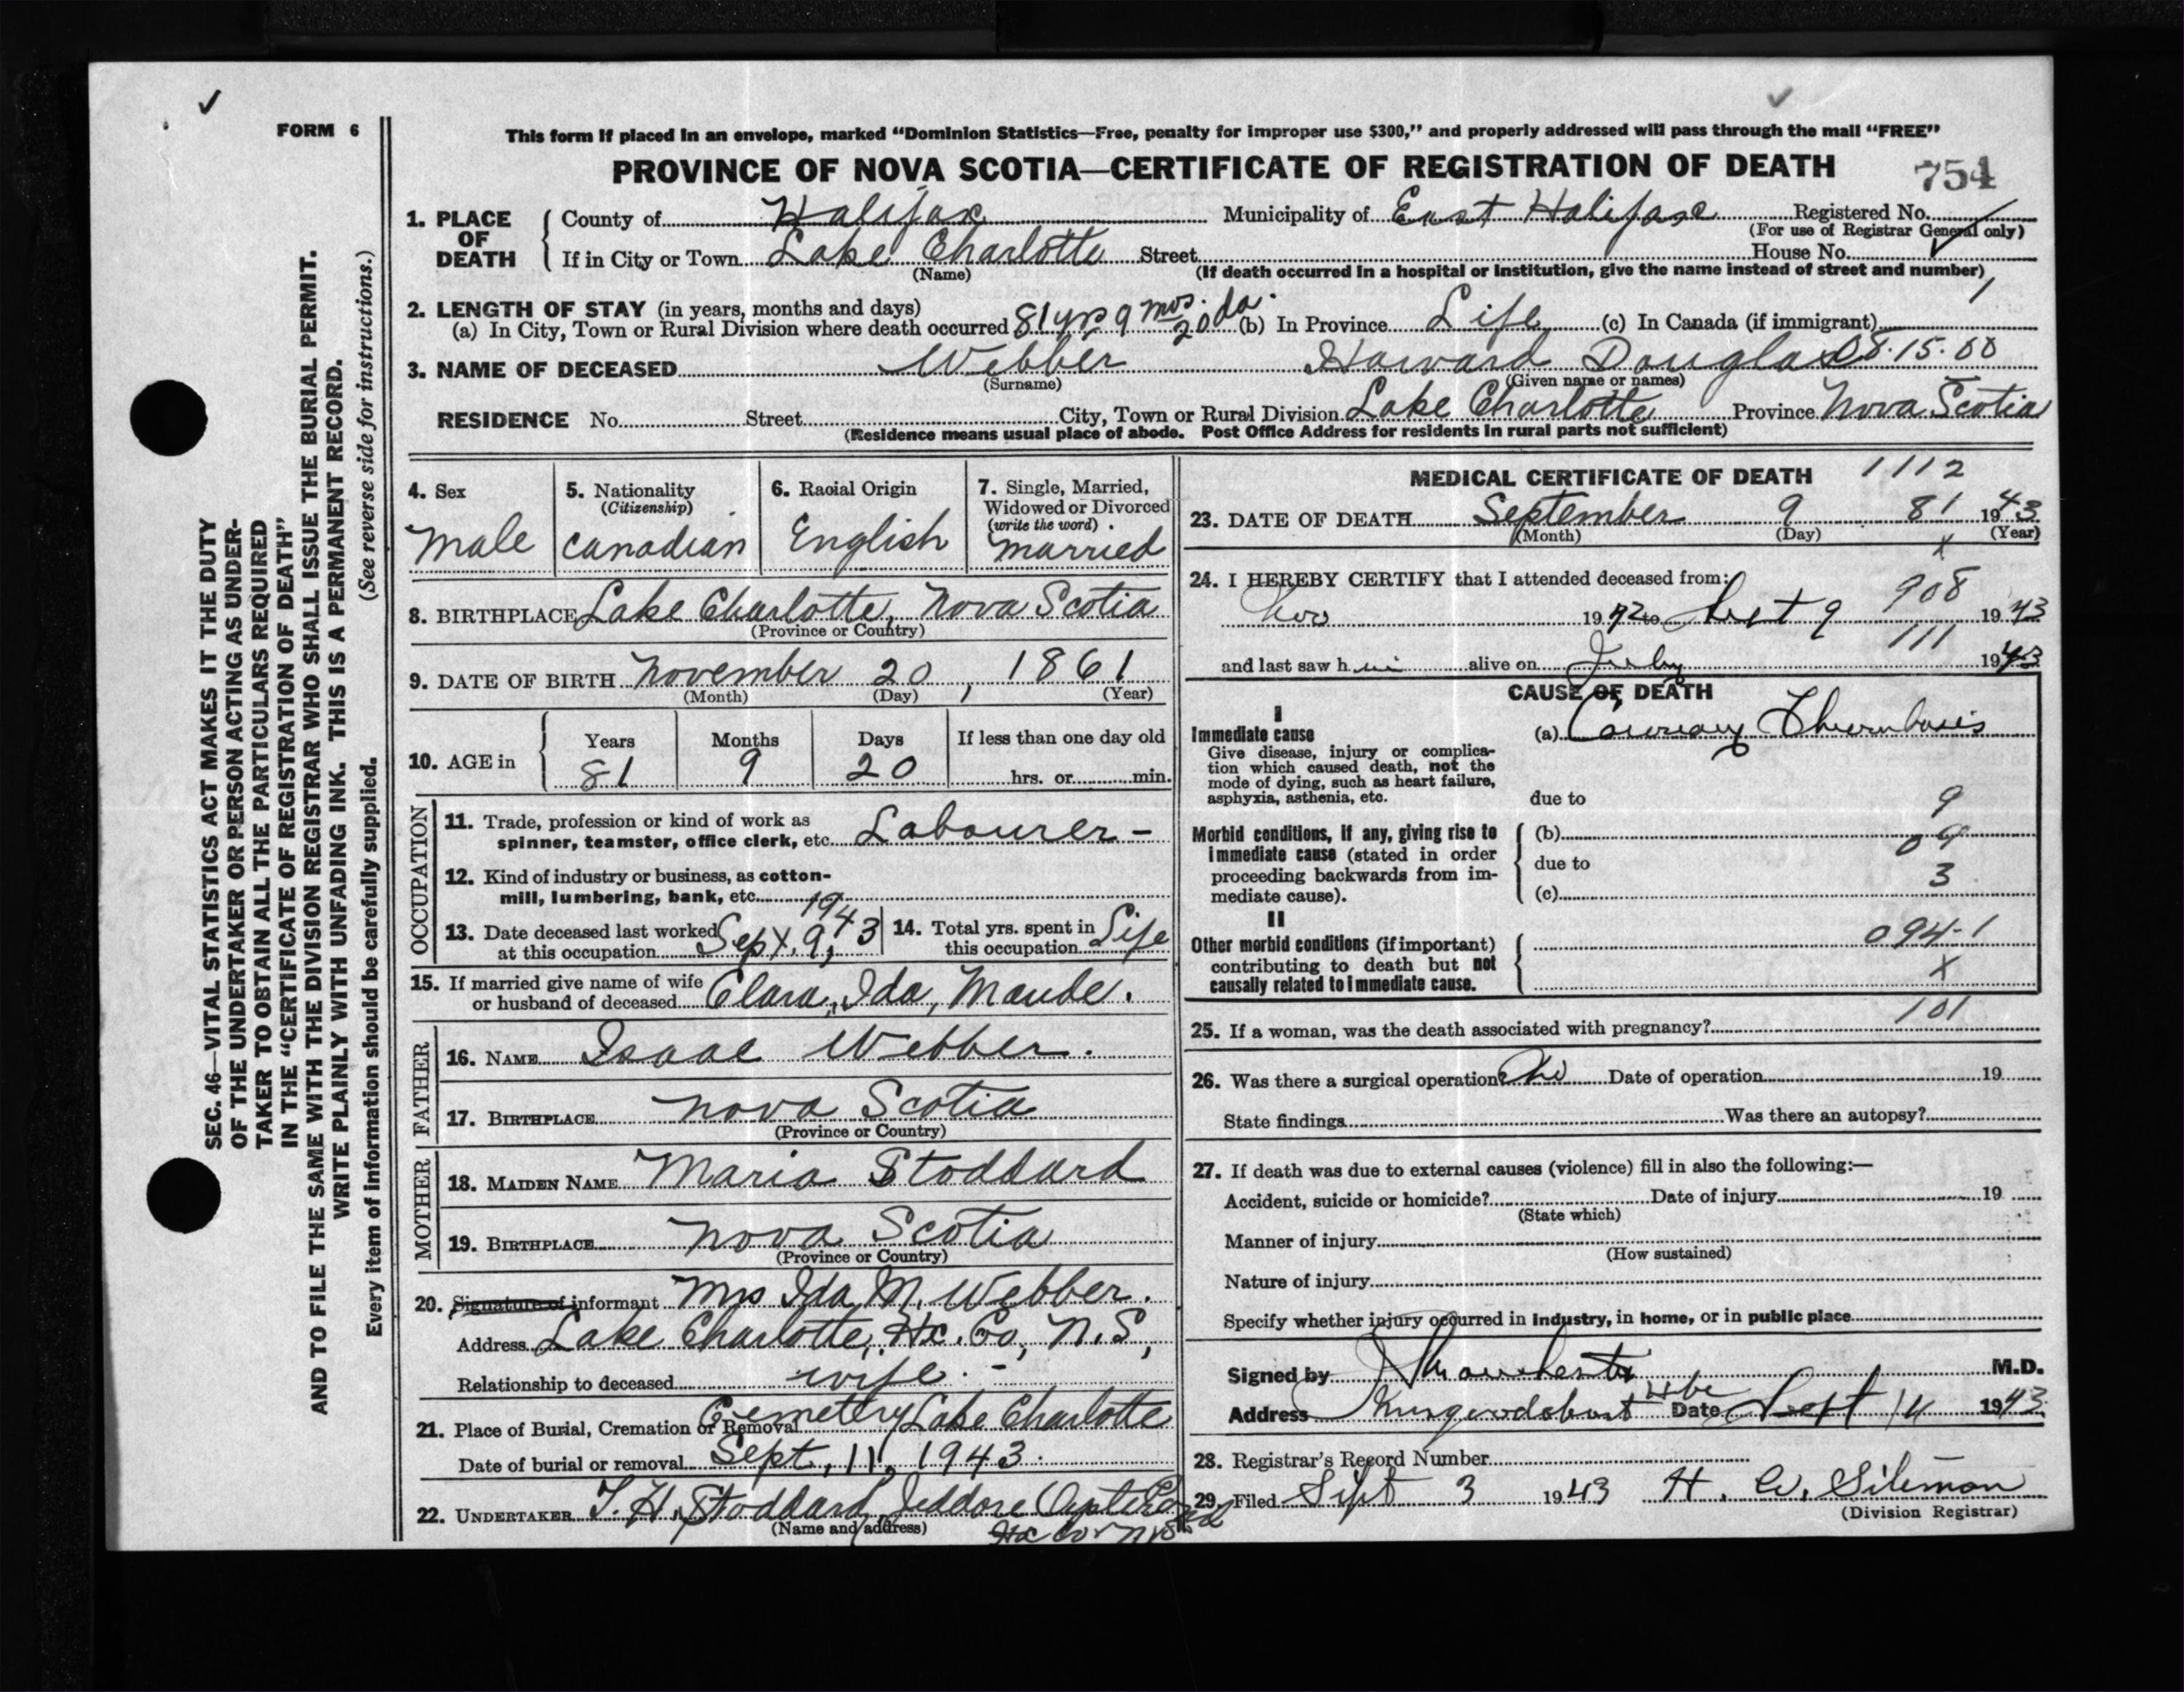 FORM 6
SEC. 46—VITAL STATISTICS ACT MAKES IT THE DUTY
OF THE UNDERTAKER OR PERSON ACTING AS UNDER-
TAKER TO OBTAIN ALL THE PARTICULARS REQUIRED
IN THE "CERTIFICATE OF REGISTRATION OF DEATH"
AND TO FILE THE SAME WITH THE DIVISION REGISTRAR WHO SHALL ISSUE THE BURIAL PERMIT.
WRITE PLAINLY WITH UNFADING INK. THIS IS A PERMANENT RECORD.
Every item of information should be carefully supplied. (See reverse side for instructions.)
This form if placed in an envelope, marked "Dominion Statistics—Free, penalty for improper use $300," and properly addressed will pass through the mail "FREE"
PROVINCE OF NOVA SCOTIA—CERTIFICATE OF REGISTRATION OF DEATH 754
1. PLACE OF DEATH County of Halifax Municipality of East Halifax Registered No.
(For use of Registrar General only)
If in City or Town Lake Charlotte Street House No.
(Name) (If death occurred in a hospital or institution, give the name instead of street and number)
2. LENGTH OF STAY (in years, months and days)
(a) In City, Town or Rural Division where death occurred 81 yrs 9 mos. 20 da. (b) In Province Life (c) In Canada (if immigrant)
3. NAME OF DECEASED Webber Howard Douglas 08.15.00
(Surname) (Given name or names)
RESIDENCE No. Street City, Town or Rural Division Lake Charlotte Province Nova Scotia
(Residence means usual place of abode. Post Office Address for residents in rural parts not sufficient)
4. Sex
Male
5. Nationality
(Citizenship)
Canadian
6. Racial Origin
English
7. Single, Married,
Widowed or Divorced
(write the word)
married
8. BIRTHPLACE Lake Charlotte, Nova Scotia
(Province or Country)
9. DATE OF BIRTH November 20, 1861
(Month) (Day) (Year)
10. AGE in Years Months Days If less than one day old
81 9 20 hrs. or min.
OCCUPATION
11. Trade, profession or kind of work as
spinner, teamster, office clerk, etc. Labourer -
12. Kind of industry or business, as cotton-
mill, lumbering, bank, etc.
13. Date deceased last worked
at this occupation Sept. 9, 1943
14. Total yrs. spent in
this occupation Life
15. If married give name of wife
or husband of deceased Clara, Ida, Maude.
FATHER
16. NAME Isaac Webber.
17. BIRTHPLACE Nova Scotia
(Province or Country)
MOTHER
18. MAIDEN NAME Maria Stoddard
19. BIRTHPLACE Nova Scotia
(Province or Country)
20. Signature of informant Mrs Ida M. Webber.
Address Lake Charlotte, Hx. Co, N.S,
Relationship to deceased wife.
21. Place of Burial, Cremation or Removal Cemetery Lake Charlotte
Date of burial or removal Sept, 11, 1943.
22. UNDERTAKER T. H. Stoddard, Jeddore Oyster Pond
(Name and address) Hx Co N.S.
MEDICAL CERTIFICATE OF DEATH 1112
23. DATE OF DEATH September 9 81 1943
(Month) (Day) (Year)
X
24. I HEREBY CERTIFY that I attended deceased from: 908
Nov 1942 to Sept 9 1943
111
and last saw him alive on July 1943
CAUSE OF DEATH
I
Immediate cause
Give disease, injury or complica-
tion which caused death, not the
mode of dying, such as heart failure,
asphyxia, asthenia, etc.
(a) Coronary Thrombosis
due to
9
Morbid conditions, if any, giving rise to
immediate cause (stated in order
proceeding backwards from im-
mediate cause).
(b) 09
due to
3
(c)
II
Other morbid conditions (if important)
contributing to death but not
causally related to immediate cause.
094-1
X
101
25. If a woman, was the death associated with pregnancy?
26. Was there a surgical operation? No Date of operation 19
State findings Was there an autopsy?
27. If death was due to external causes (violence) fill in also the following:—
Accident, suicide or homicide? Date of injury 19
(State which)
Manner of injury
(How sustained)
Nature of injury
Specify whether injury occurred in industry, in home, or in public place
Signed by M.D.
Address Date Sept 14 1943
28. Registrar's Record Number
29. Filed Sept 3 1943 H. W. Siteman
(Division Registrar)